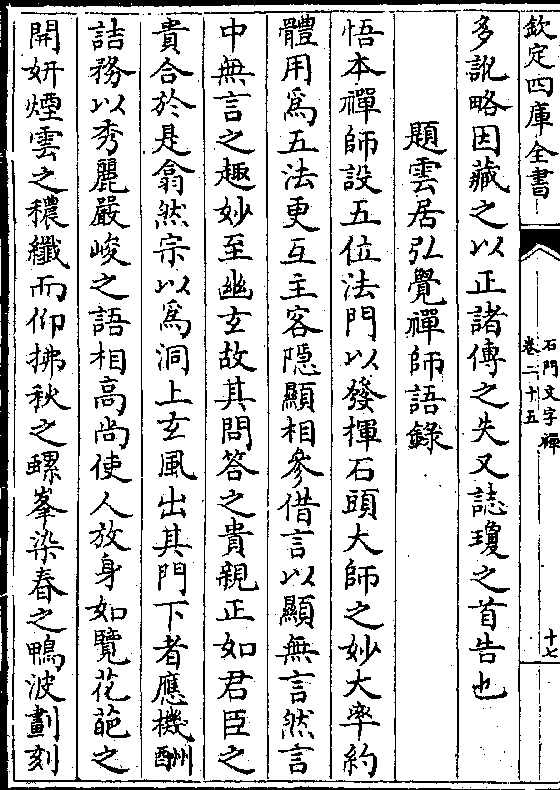 欽定四庫全書
石門文字禪
卷二十五
十七
多訛略因藏之以正諸傳之失又誌瓊之首告也
題雲居弘覺禪師語錄
悟本禪師設五位法門以發揮石頭大師之妙大率約
體用爲五法更互主客隱顯相參借言以顯無言然言
中無言之趣妙至幽玄故其問答之貴親正如君臣之
貴合於是翕然宗以爲洞上玄風出其門下者應機酬
詰務以秀麗嚴峻之語相高尚使人放身如覽花葩之
開妍煙雲之穠纖而仰拂秋之螺峯染春之鴨波劃刻